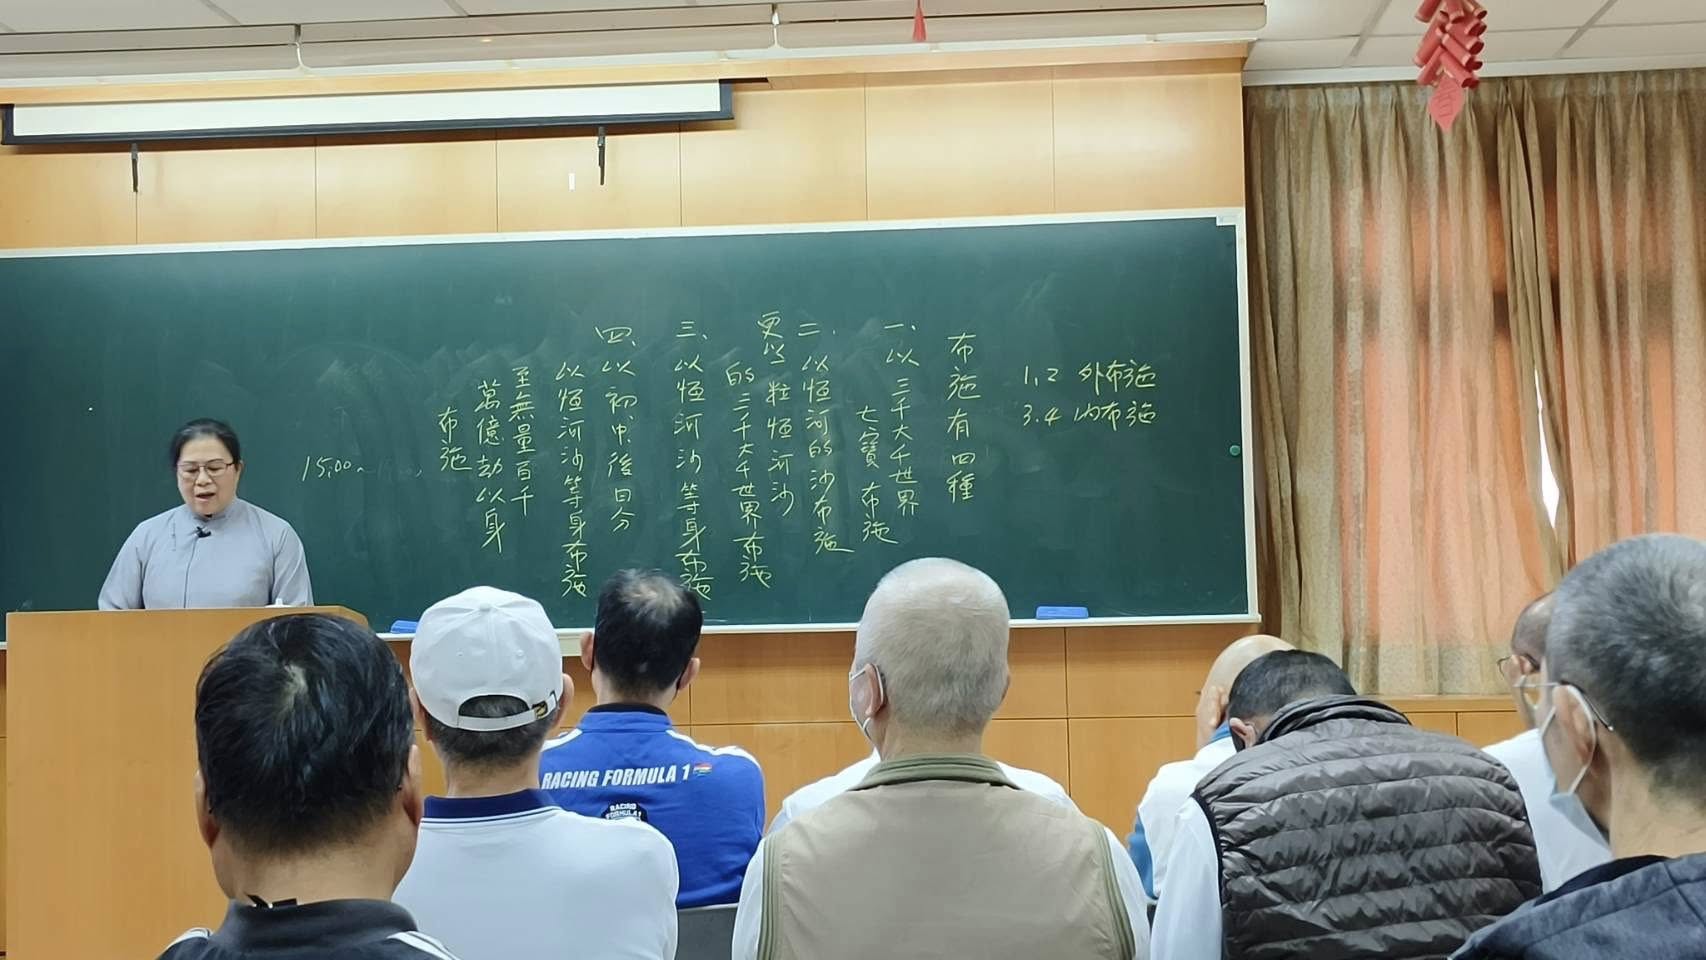 1,2 外布施
3.4 內布施
布施有四種
一、以三千大千世界
七寶布施
二、以恒河的沙布施
更以一粒恒河沙
的三千大千世界布施
三、以恒河沙等身布施
四、以初中後日分
以恒河沙等身布施
至無量百千
萬億劫以身
布施
15:00~
RACING FORMULA 1
RACING
FORMULA 1